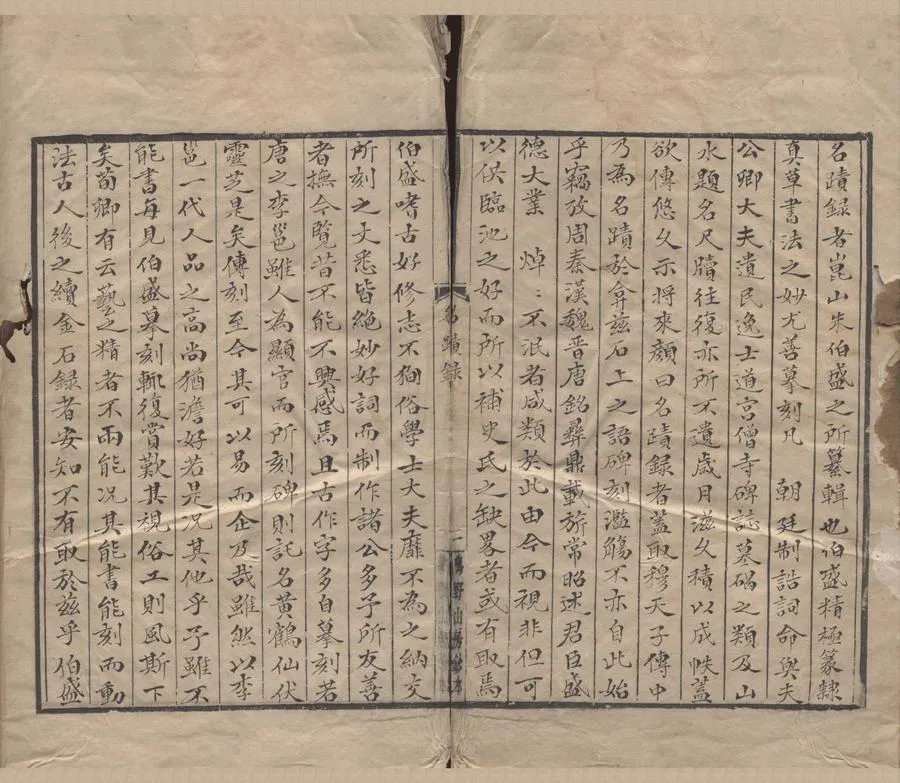 名蹟録者崑山朱伯盛之所纂輯也伯盛精極篆隸
真草書法之妙尤善摹刻凡　朝廷制誥詞命與夫
公卿大夫遺民逸士道宮僧寺碑誌墓碣之類及山
水題名尺牘往復亦所不遺歲月滋久積以成帙蓋
欲傳悠久示將來顔曰名蹟録者蓋取穆天子傳中
乃為名蹟於弇茲石上之語碑刻濫觴不亦自此始
乎竊攷周秦漢魏晉唐銘彝鼎載旂常昭述君臣盛
德大業　焯〻不泯者咸類於此由今而視非但可
以供臨池之好而所以補史氏之缺畧者或有取焉
名蹟録
二
野仙房
本
伯盛嗜古好修志不狥俗學士大夫靡不為之納交
所刻之文悉皆絶妙好詞而制作諸公多予所友善
者撫今覽昔不能不興感焉且古作字多自摹刻若
唐之李邕雖人為顯官而所刻碑則託名黃鶴仙伏
靈芝是矣傳刻至今其可以易而企及哉雖然以李
邕一代人品之高尚猶澹好若是况其他乎予雖不
能書每見伯盛摹刻輒復賞歎其視俗工則風斯下
矣荀卿有云藝之精者不兩能况其能書能刻而動
法古人後之續金石録者安知不有取於兹乎伯盛